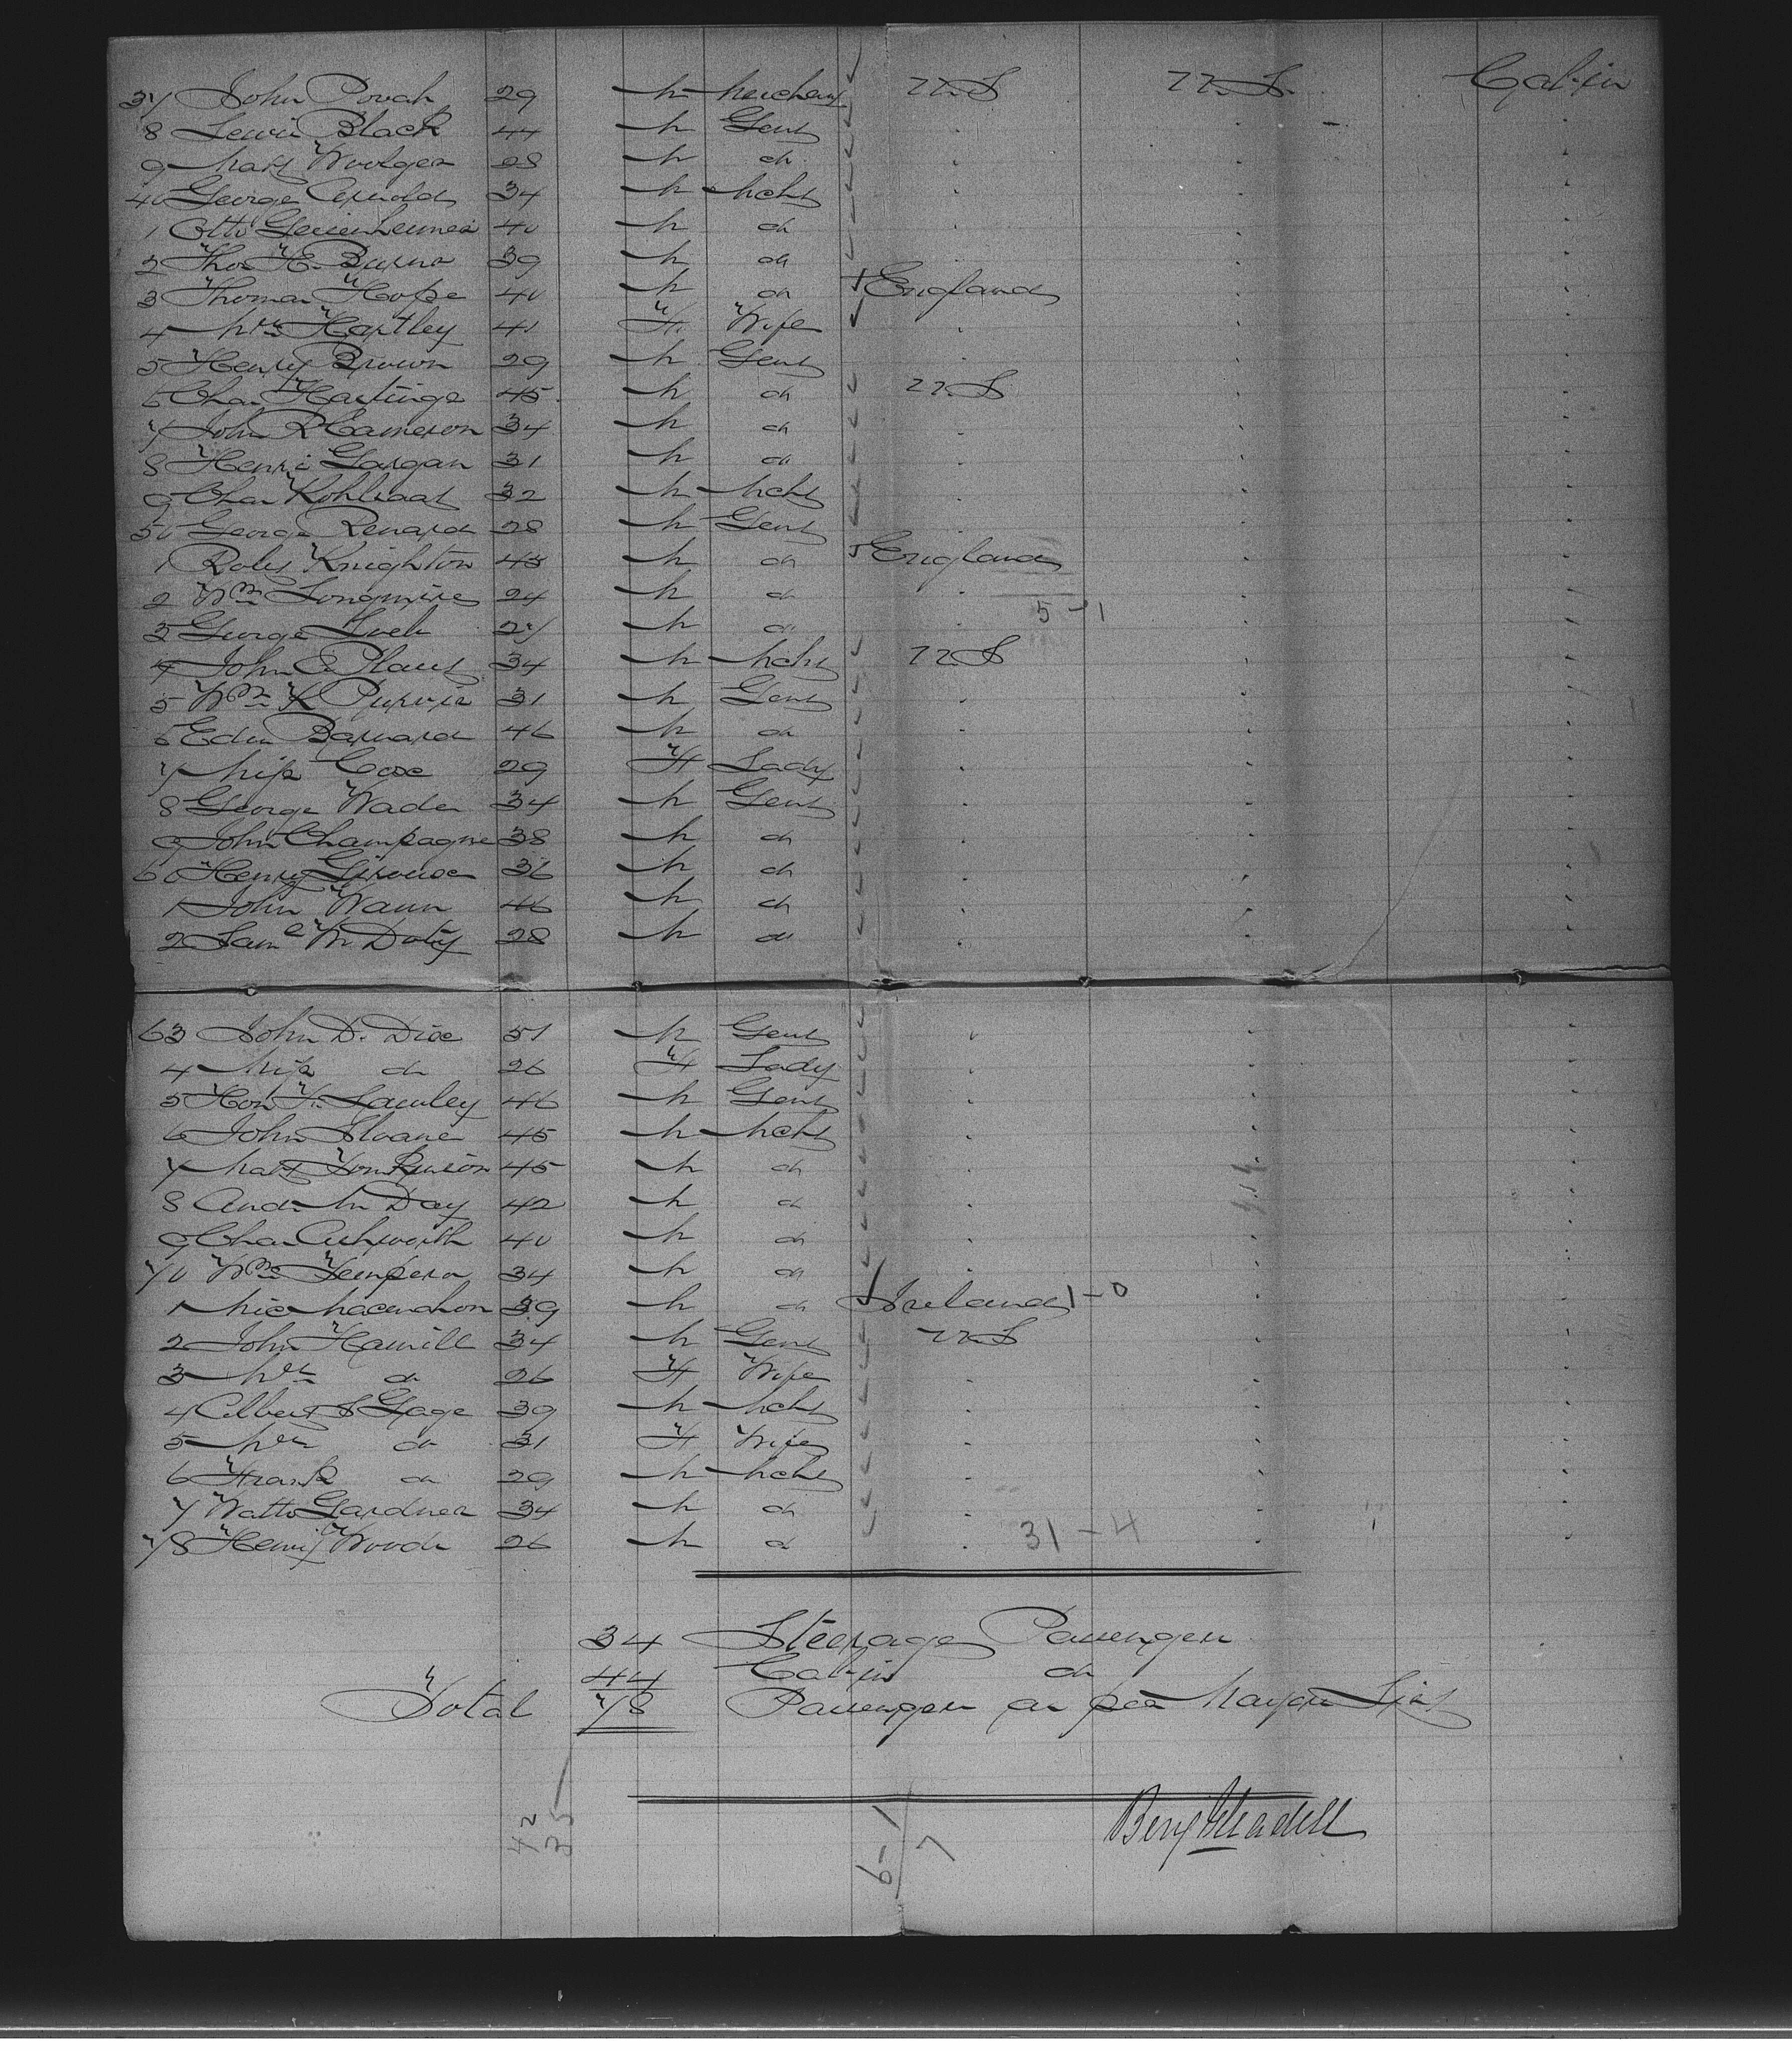 37 John Povah 29 M Merchant U.S U.S. Cabin
8 Lewis Black 44 M Gent
9 Mat Woolger 28 M do
40 George Arnolds 34 M Mcht
1 Otto 40 M do
2 Thos H. Burns 39 M do
3 Thomas Hope 40 M do England
4 Mrs Hartley 41 F. Wife
5 Henry Brown 29 M Gent
6 Chas Hastings 45 M do U.S
7 John R Cameron 34 M do
8 Henri Gargan 31 M do
9 Chas Kohlsaat 32 M Mcht
50 George Renard 28 M Gent
1 Robt Knighton 45 M do England
2 Wm Longmire 24 M do 5-1
3 George 27 M do
4 John Plant 34 M Mcht U.S
5 Wm K Purvis 31 M Gent
6 Edw Barnard 46 M do
7 Miss Cox 29 F Lady
8 George Wade 34 M Gent
9 John Champagne 38 M do
60 Henry Giroux 36 M do
1 John Wann 46 M do
2 Saml W Doty 28 M do
63 John D. Dix 51 M Gent
4 Miss do 26 F Lady
5 Hon F. Lawley 46 M Gent
6 John Sloane 45 M Mcht
7 Mat Tomkinson 45 M do
8 And. M Day 42 M do
9 Chas Ashworth 40 M do
70 Wm Tempera 34 M do
1 39 M do Ireland 1-0
2 John Hamill 34 M Gent U.S
3 Mrs do 26 F Wife
4 Albert S Gage 39 M Mcht
5 Mrs do 31 F Wife
6 Frank do 29 M Mcht
7 Watts Gardner 34 M do
78 Henry Woods 26 M do 31-4
34 Steerage Passengers
44 Cabin do
Total 78 Passengers as per List
42
35
6-1
7
Benj Gleadell